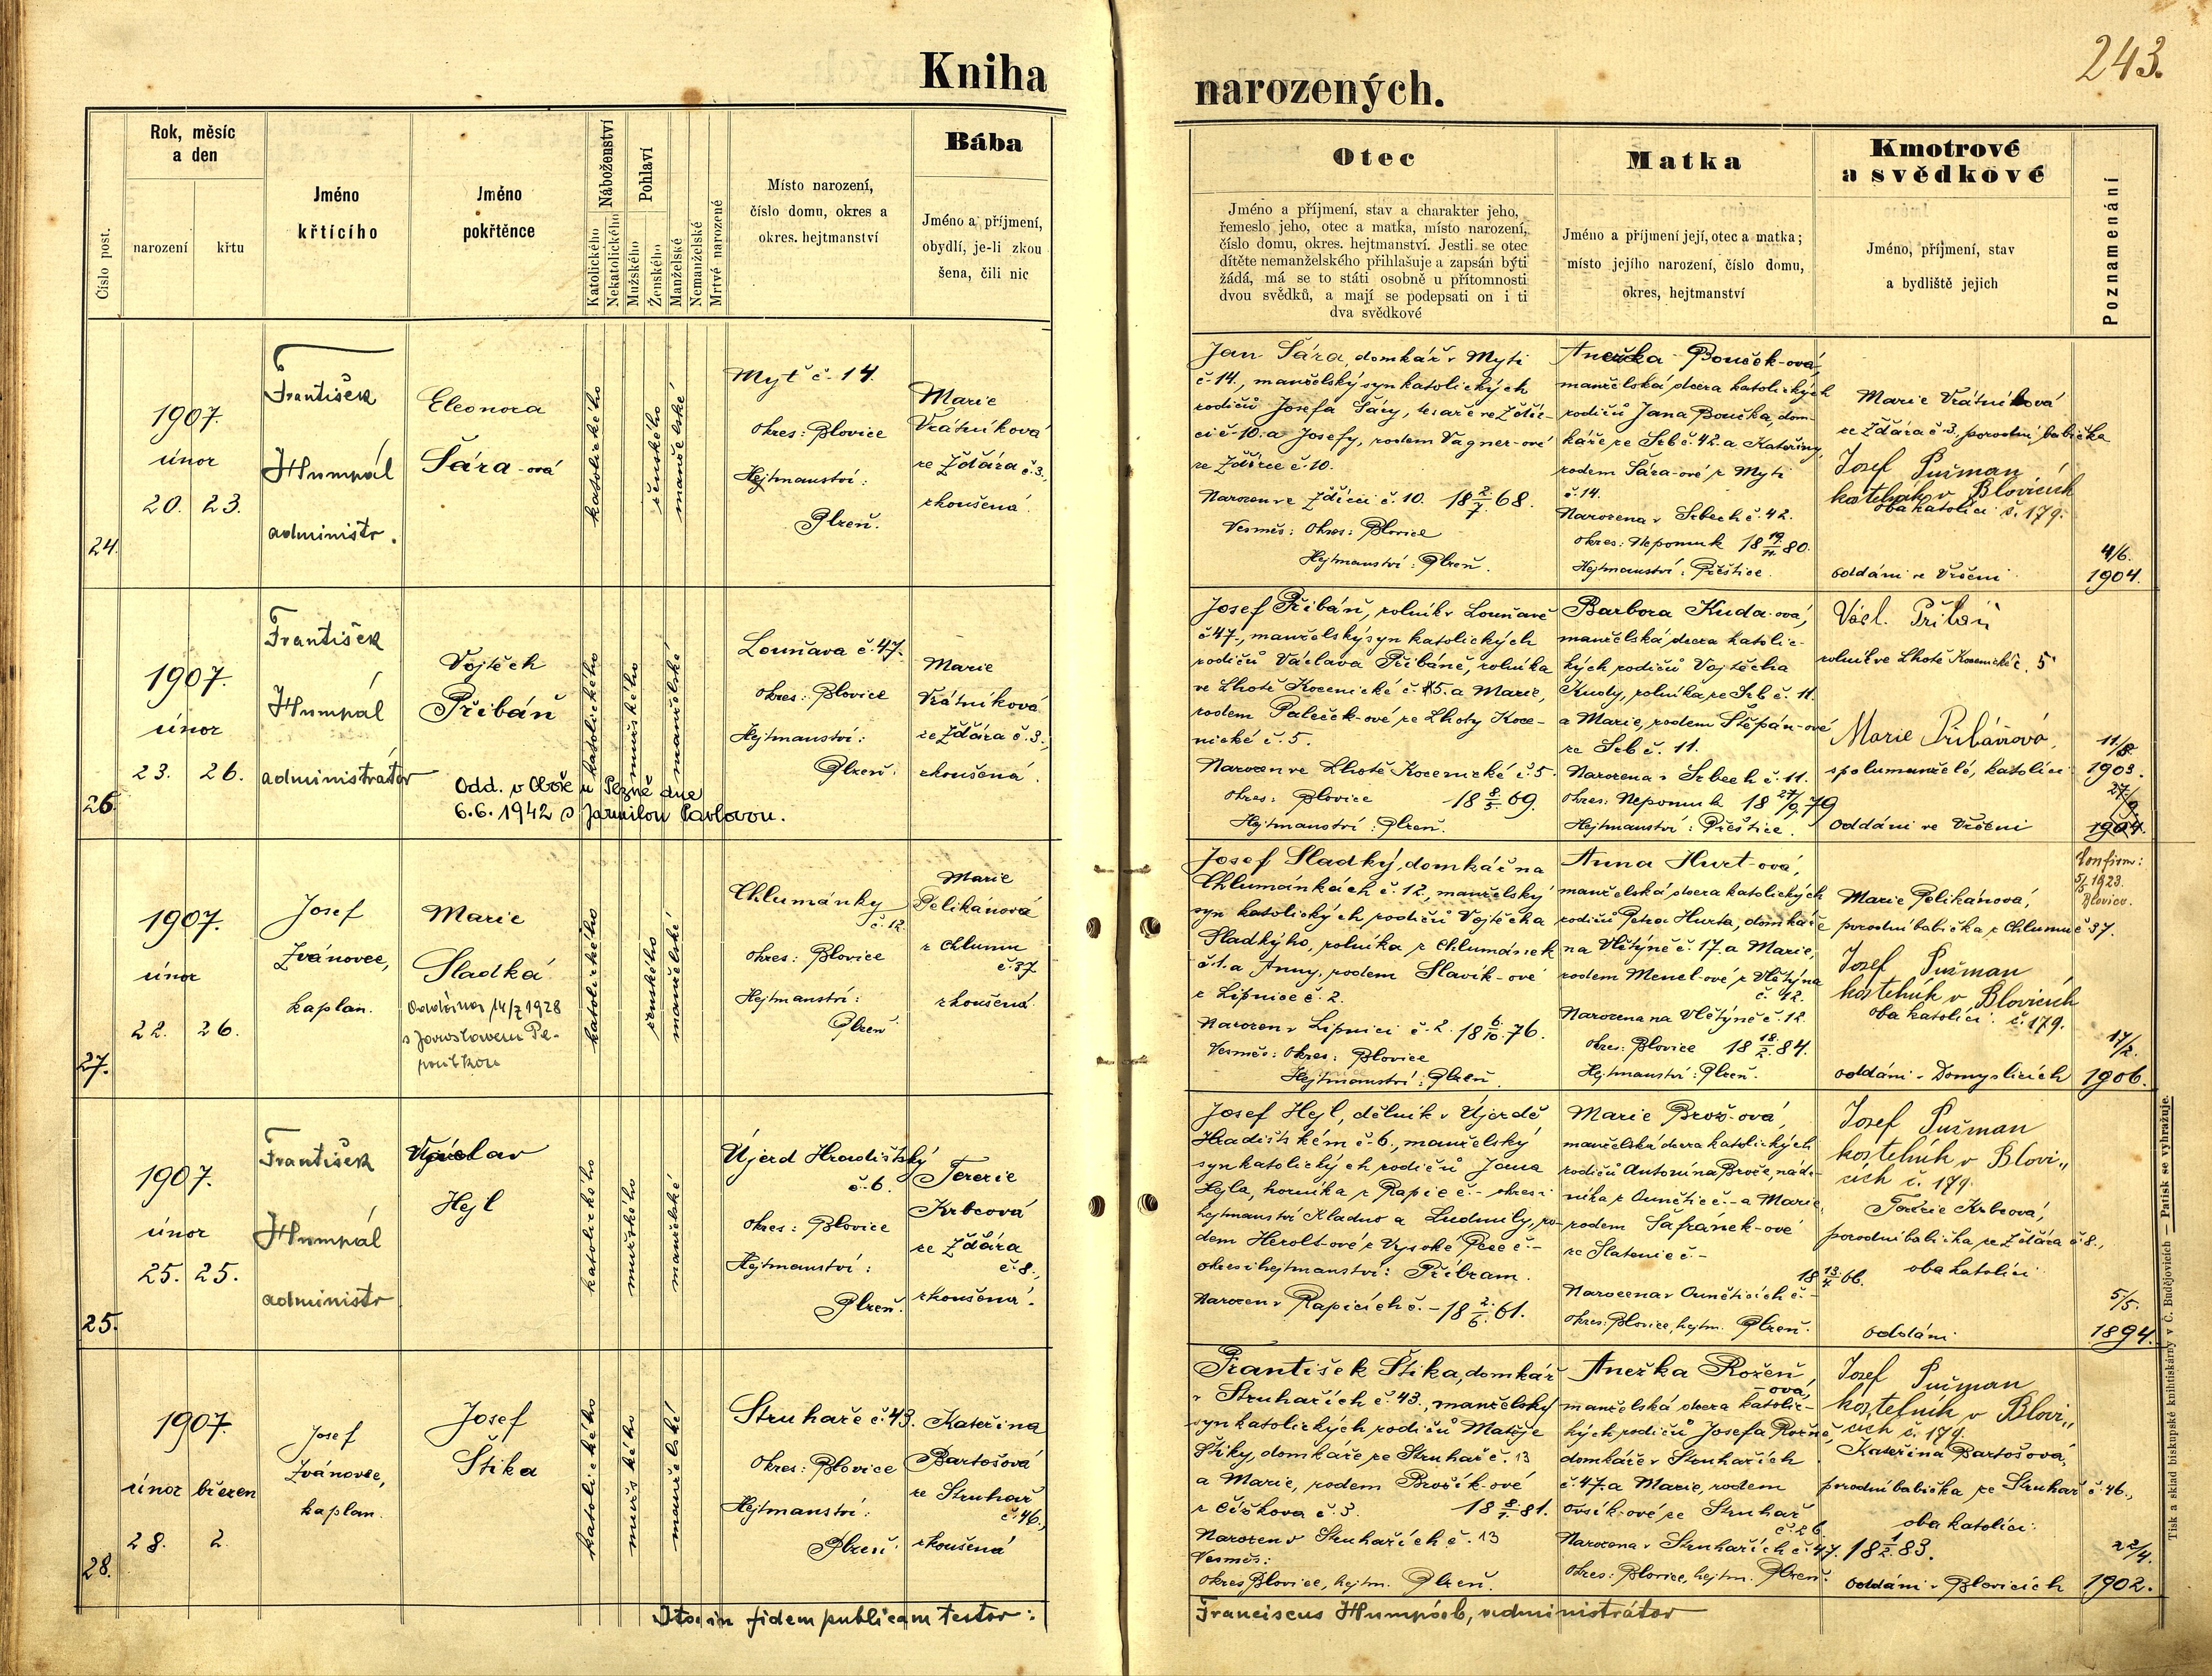 243.
Kniha
narozených.
Číslo post.
Rok, měsíc
a den
narození
křtu
Jméno
křtícího
Jméno
pokřtěnce
Náboženství
Katolického
Nekatolického
Pohlaví
Mužského
Ženského
Manželské
Nemanželské
Mrtvě narozené
Místo narození,
číslo domu, okres a
okres. hejtmanství
Bába
Jméno a příjmení,
obydlí, je-li zkou
šena, čili nic
Otec
Jméno a příjmení, stav a charakter jeho,
řemeslo jeho, otec a matka, místo narození,
číslo domu, okres. hejtmanství. Jestli se otec
dítěte nemanželského přihlašuje a zapsán býti
žádá, má se to státi osobně u přítomnosti
dvou svědků, a mají se podepsati on i ti
dva svědkové
Matka
Jméno a příjmení její, otec a matka;
místo jejího narození, číslo domu,
okres, hejtmanství
Kmotrové
a svědkové
Jméno, příjmení, stav
a bydliště jejich
Poznamenání
24.
1907.
únor
20. 23.
František
Humpál
administr.
Eleonora
Šára-ová
katolického
ženského
manželské
Myť č. 14.
Okres: Blovice
Hejtmanství:
Plzeň.
Marie
Vrátníková
ze Žďára č. 3.,
zkoušená.
Jan Šára, domkář v Myti
č. 14., manželský syn katolických
rodičů Josefa Šáry, tesaře ve Zdír-
ci č. 10. a Josefy, rodem Vagner-ové
ze Zdírce č. 10.
Narozen ve Zdírci č. 10. 18 2/7 68.
Vesměs: Okres: Blovice
Hejtmanství: Plzeň.
Anežka Bouček-ová,
manželská dcera katolických
rodičů Jana Boučka, dom-
káře ze Srb č. 42. a Kateřiny,
rodem Šára-ové z Myti
č. 14.
Narozena v Srbech č. 42.
Okres: Nepomuk 18 19/11 80.
Hejtmanství: Přeštice.
Marie Vrátníková
ze Žďára č. 3. porodní babička
Josef Pušman
kostelník v Blovicích
oba katolíci č. 179.
oddáni ve Vrčeni
4/6.
1904.
26.
1907.
únor
23. 26.
František
Humpál
administrátor
Vojtěch
Přibáň
Odd. v Oboře u Plzně dne
6.6.1942 s Jarmilou Pavlovou.
katolického
mužského
manželské
Louňava č. 47.
Okres: Blovice
Hejtmanství:
Plzeň.
Marie
Vrátníková
ze Žďára č. 3.,
zkoušená.
Josef Přibáň, rolník v Louňavě
č. 47., manželský syn katolických
rodičů Václava Přibáně, rolníka
ve Lhotě Kocenické č. 5. a Marie,
rodem Paleček-ové ze Lhoty Koce-
nické č. 5.
Narozen ve Lhotě Kocenické č. 5.
Okres: Blovice 18 8/5. 69.
Hejtmanství: Plzeň.
Barbora Kuda-ová,
manželská dcera katolic-
kých rodičů Vojtěcha
Kudy, rolníka ze Srb č. 11.
a Marie, rodem Štěpán-ové
ze Srb č. 11.
Narozena v Srbech č. 11.
Okres: Nepomuk 18 27/9 79
Hejtmanství: Přeštice.
Václ. Přibáň
rolník ve Lhotě Kocenické č. 5
Marie Přibáňová,
spolumanželé, katolíci
oddáni ve Vrčeni
11/8.
1903.
27/9
1904.
27.
1907.
únor
22. 26.
Josef
Zvánovec,
kaplan.
Marie
Sladká
Oddána 14/7 1928
s Jaroslavem Pe-
katolického
ženského
manželské
Chlumánky
č. 12.
Okres: Blovice
Hejtmanství:
Plzeň.
Marie
Pelikánová
z Chlumu
č. 37
zkoušená.
Josef Sladký, domkář na
Chlumánkách č. 12., manželský
syn katolických rodičů Vojtěcha
Sladkýho, rolníka z Chlumánek
č. 1. a Anny, rodem Slavík-ové
z Lipnice č. 2.
Narozen v Lipnici č. 2. 18 6/10. 76.
Vesměs: Okres: Blovice
Hejtmanství: Plzeň.
Anna Hurt-ová,
manželská dcera katolických
rodičů Petra Hurta, domkáře
na Vlčtýně č. 17. a Marie,
rodem Mencl-ové z Vlčtýna
č. 42.
Narozena na Vlčtýně č. 12.
Okres: Blovice 18 18/2. 84.
Hejtmanství: Plzeň.
Marie Pelikánová,
porodní babička z Chlumu č. 37.
Josef Pušman
kostelník v Blovicích
oba katolíci. č. 179.
oddáni v Domyslicích
Konfirm:
5/5 1923.
Blovice.
17/2.
1906.
25.
1907.
únor
25. 25.
František
Humpál
administr
Václav
Hejl
katolického
mužského
manželské
Újezd Hradišťský
č. 6.
Okres: Blovice
Hejtmanství:
Plzeň.
Terezie
Krbcová
ze Žďára
č. 8.,
zkoušená.
Josef Hejl, dělník v Újezdě
Hradišťském č. 6., manželský
syn katolických rodičů Jana
Hejla, horníka z Rapic č. – okres i
hejtmanství Kladno a Ludmily, ro-
dem Herolt-ové z Vysoké Pece č. –
okres i hejtmanství: Příbram.
Narozen v Rapicích č. – 18 2/6. 61.
Marie Brož-ová,
manželská dcera katolických
rodičů Antonína Brože, náde-
níka z Ouněticč. – a Marie,
rodem Šafránek-ové
ze Slatenic č. –
18 13/4 66.
Narozena v Ouněticích č. –
Okres: Blovice, hejtm. Plzeň.
Josef Pušman
kostelník v Blovi„
cích č. 179.
Terezie Krbcová,
porodní babička ze Žďára č. 8.,
oba katolíci
oddáni
5/5.
1894.
28.
1907.
únor březen
28. 2.
Josef
Zvánovec,
kaplan.
Josef
Štika
katolického
mužského
manželské
Struhaře č. 43.
Okres: Blovice
Hejtmanství:
Plzeň.
Kateřina
Bartošová
ze Struhař
č. 46.,
zkoušená
František Štika, domkář
v Struhařích č. 43., manželský
syn katolických rodičů Matěje
Štiky, domkáře ze Struhař č. 13
a Marie, rodem Brožík-ové
z Čížkova č. 3. 18 8/1. 81.
Narozen v Struhařích č. 13
Vesměs:
Okres Blovice, hejtm. Plzeň.
Anežka Rožeň
-ová,
manželská dcera katolic-
kých rodičů Josefa Rožně,
domkáře v Struhařích
č. 47. a Marie, rodem
Ovsík-ové ze Struhař
č. 26.
Narozena v Struhařích č. 47. 18 1/2. 83.
Okres: Blovice, hejtm. Plzeň.
Josef Pušman
kostelník v Blovi„
cích č. 179.
Kateřina Bartošová,
porodní babička ze Struhař č. 46.,
oba katolíci.
oddáni v Blovicích
22/4.
1902.
Ita in fidem publicam testor:
Franciscus Humpál, administrátor
Tisk a sklad biskupské knihtiskárny v Č. Budějovicích — Patisk se vyhražuje.